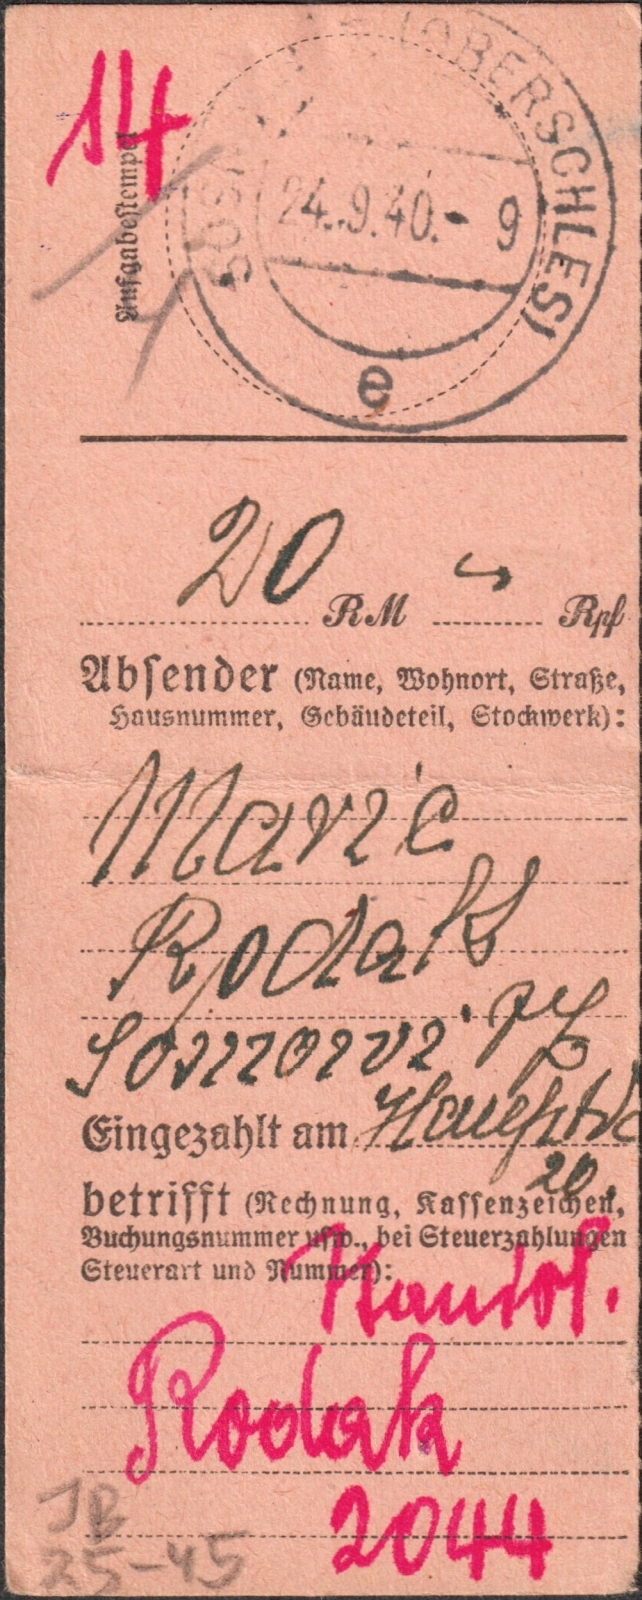 14
Aufgabestempel
SOSN (OBERSCHLES)
24.9.40.- 9
e
20 RM Rpf
Absender (Name, Wohnort, Straße,
Hausnummer, Gebäudeteil, Stockwerk):
Marie
Rodak
Eingezahlt am
20.
betrifft (Rechnung, Kassenzeichen,
Buchungsnummer usw., bei Steuerzahlungen
Steuerart und Nummer):
Rodak
2044
JB
25-45